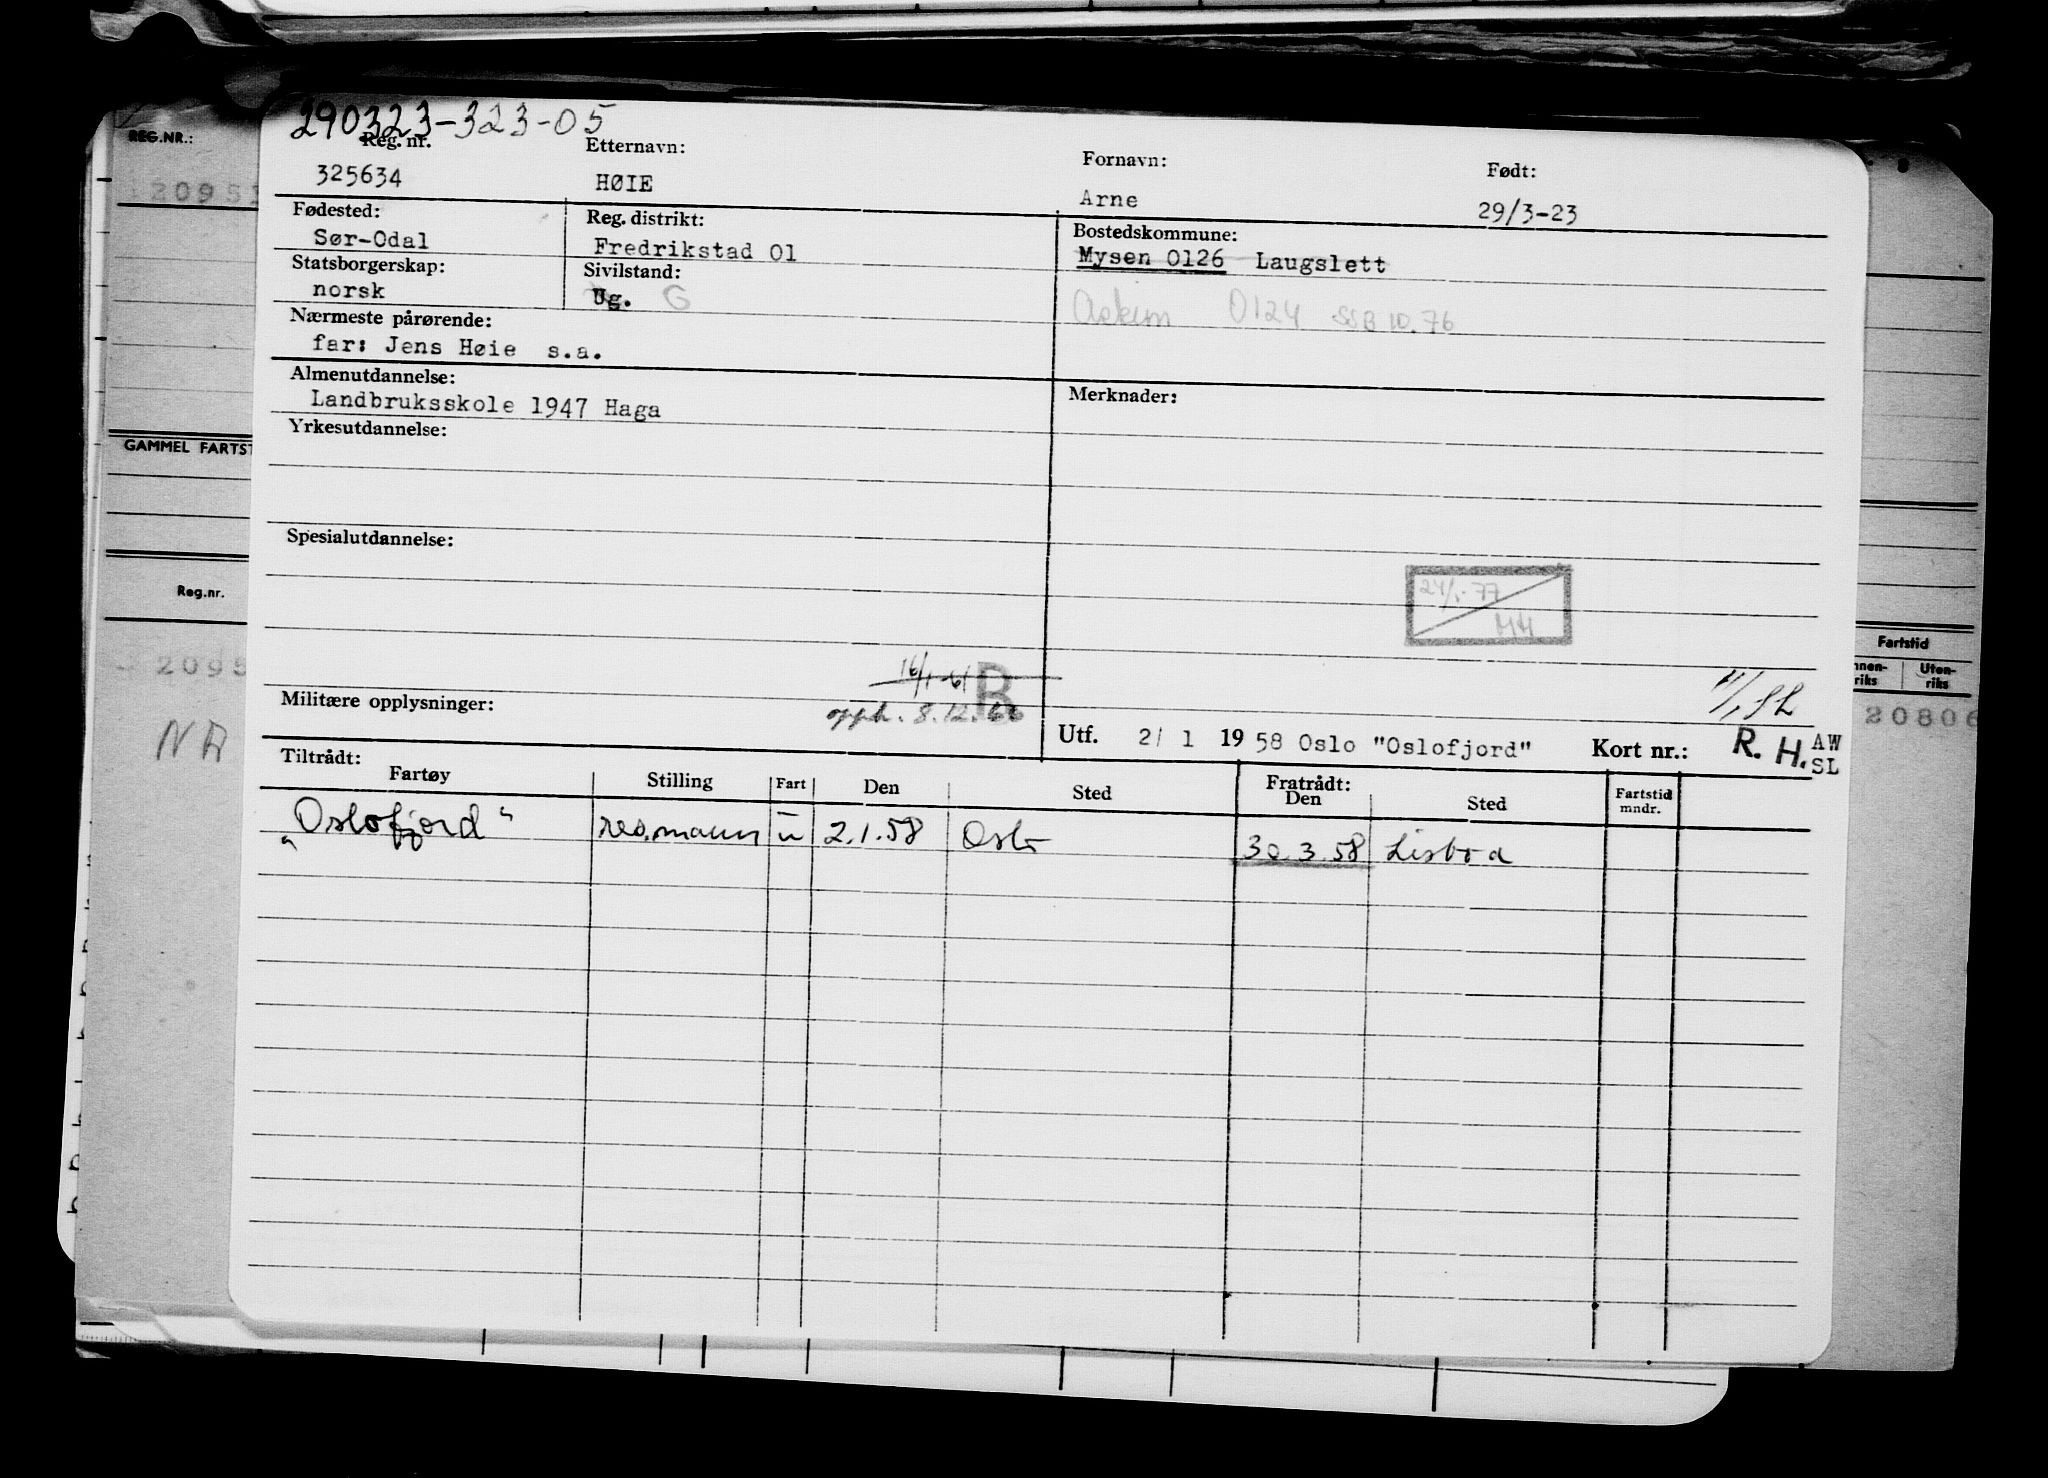 290323-323-05
REG.NR.:
Reg. nr.
Etternavn:
Fornavn:
Født:
325634
HØIE
Arne
29/3-23
Fødested:
Reg. distrikt:
Bostedskommune:
Sør-Odal
Fredrikstad 01
Mysen 0126 Laugslett
Statsborgerskap:
Sivilstand:
norsk
Ug. G
Askim 0124 SSB 10.76
Nærmeste pårørende:
far: Jens Høie s.a.
Almenutdannelse:
Merknader:
Landbruksskole 1947 Haga
Yrkesutdannelse:
GAMMEL FARTST
Spesialutdannelse:
Reg.nr.
24/1-77
MH
Fartstid
Uten-
riks
16/1-61
B
Militære opplysninger:
opph. 8.12.66
20806
NA
Utf. 2/ 1 1958 Oslo "Oslofjord"
Kort nr.:
R. H. AW
SL
Tiltrådt:
Fartøy
Stilling
Fart
Den
Sted
Fratrådt:
Den
Sted
Fartstid
mndr.
"Oslofjord" res.mann u 2.1.58 Oslo 30.3.58 Lisboa